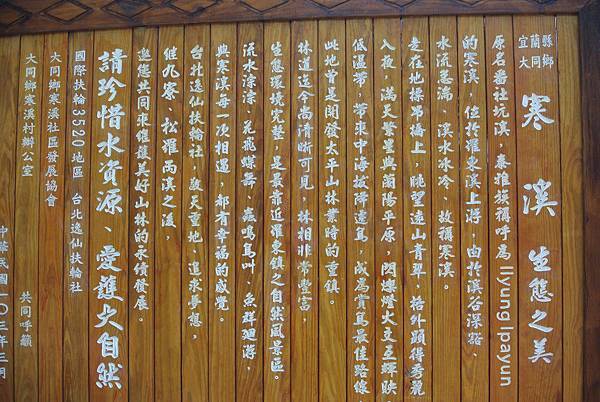 宜蘭縣
大同鄉
寒溪 生態之美
原名番社坑溪，泰雅族稱呼為 llyung lpayun
的寒溪，位於羅東溪上游，由於溪谷深谿
水流湍湍、溪水冰冷、故稱寒溪。
走在地標吊橋上，眺望遠山青翠，格外顯得秀麗
入夜，滿天繁星與蘭陽平原，閃爍燈火交互輝映
低溫帶，帶來中海拔降遷鳥，成為賞鳥最佳路線
此地曾是開發太平山林業時的重鎮。
林道迄今尚清晰可見，林相非常豐富，
生態環境完整，是最靠近羅東鎮之自然風景區。
流水淙淙、花飛蝶舞、蟲鳴鳥叫、魚群迴游，
與寒溪每一次相遇，都有幸福的感覺。
台北逸仙扶輪社，敬天重地，追求夢想，
繼九寮、松羅兩溪之後，
邀您共同來維護美好山林的永續發展。
請珍惜水資源、愛護大自然
國際扶輪3520地區 台北逸仙扶輪社
大同鄉寒溪社區發展協會
大同鄉寒溪村辦公室 共同呼籲
中華民國一0三年三月